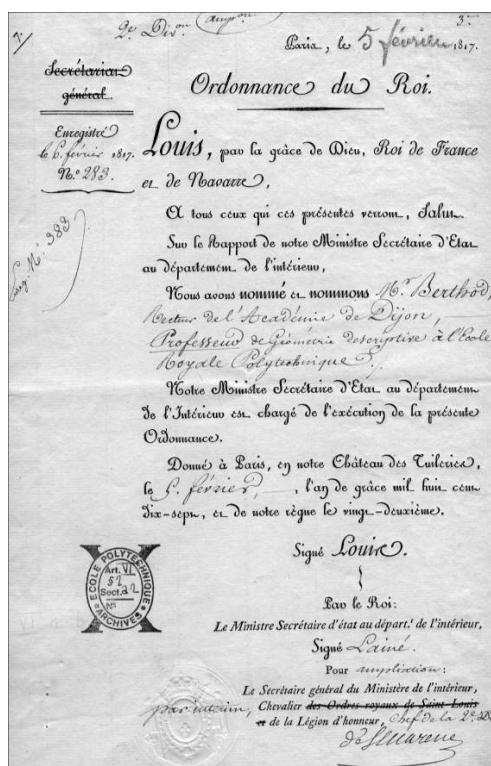 2e Divon
ampon
3e
Paris, le 5 février 1817.
Secrétariat
général
Enregistré
le 6 février 1817.
N.o 283.
Enreg. N.o 383
Ordonnance du Roi.
Louis, par la grâce de Dieu, Roi de France
et de Navarre,
A tous ceux qui ces présentes verront, Salut.
Sur le Rapport de notre Ministre Secrétaire d'Etat
au département de l'intérieur,
Nous avons nommé et nommons Mr. Berthod,
Recteur de l'Académie de Dijon,
Professeur de Géométrie descriptive à l'Ecole
Royale Polytechnique.
Notre Ministre Secrétaire d'Etat au département
de l'Intérieur est chargé de l'exécution de la présente
Ordonnance.
Donné à Paris, en notre Château des Tuileries,
le 5 février, l'an de grâce mil huit cent
dix-sept, et de notre règne le vingt-deuxième.
Signé Louis.
Par le Roi:
Le Ministre Secrétaire d'état au départ.t de l'intérieur,
Signé Lainé.
Pour ampliation:
Le Secrétaire général du Ministère de l'intérieur,
par interim, Chevalier des Ordres royaux de Saint-Louis
et de la Légion d'honneur, Chef de la 2e
ECOLE POLYTECHNIQUE
Art. VI
§2
Sect. a2
No
ARCHIVES